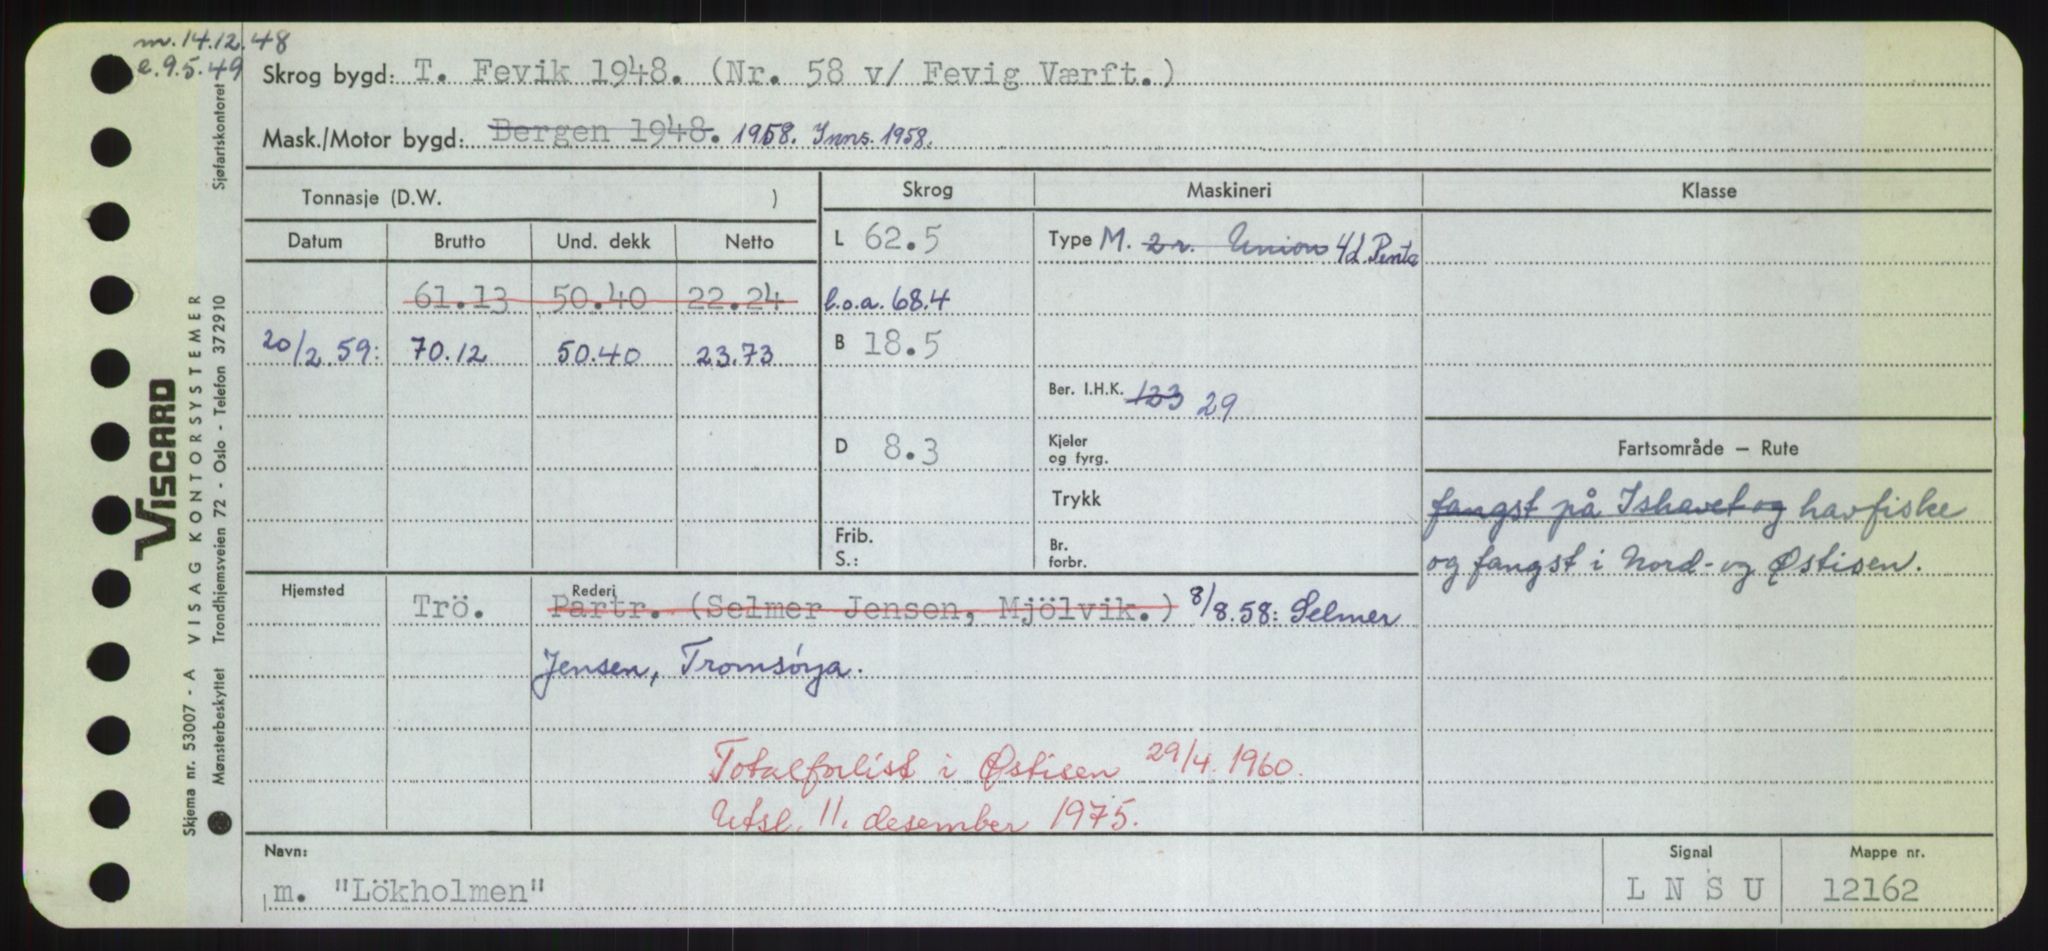 m. 14.12.48
e. 9.5.49
Skrog bygd: T. Fevik 1948. (Nr. 58 v/ Fevig Værft.)
Mask./Motor bygd: Bergen 1948. 1958. Inns. 1958.
Tonnasje (D.W. )
Skrog
Maskineri
Klasse
Datum Brutto Und. dekk Netto
L 62.5
Type M. 2 r. Union 4d. Penta
61.13 50.40 22.24
l.o.a. 68.4
20/2.59: 70.12 50.40 23.73
B 18.5
Ber. I.H.K. 123 29
D 8.3
Kjeler
og fyrg.
Fartsområde – Rute
Trykk
fangst på Ishavet og havfiske
og fangst i Nord- og Østisen.
Frib.
S.:
Br.
forbr.
Hjemsted
Trö.
Rederi
Partr. (Selmer Jensen, Mjölvik.) 8/8.58: Selmer
Jensen, Tromsöya.
Totalforlist i Østisen 29/4.1960.
Utsl. 11. desember 1975.
Navn:
m. "Lökholmen"
Signal
L N S U
Mappe nr.
12162
VISCARD
Skjema nr. 53007 - A VISAG KONTORSYSTEMER
Mønsterbeskyttet Trondhjemsveien 72 - Oslo - Telefon 372910 Sjøfartskontoret